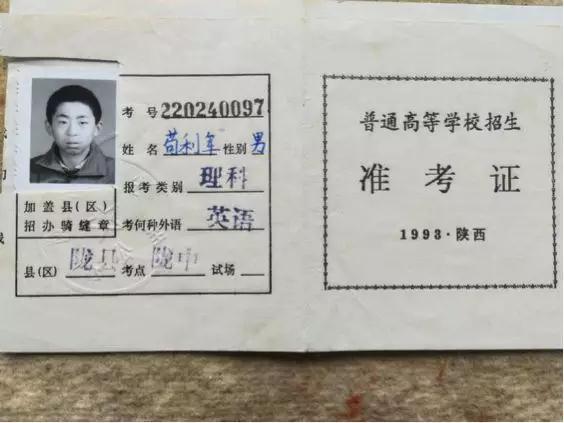 考 号 220240097
姓 名 苟利军 性别 男
报考类别 理科
考何种外语 英语
加盖县(区)
招办骑缝章
县(区) 陇县 考点 陇中 试场
普通高等学校招生
准考证
1993·陕西